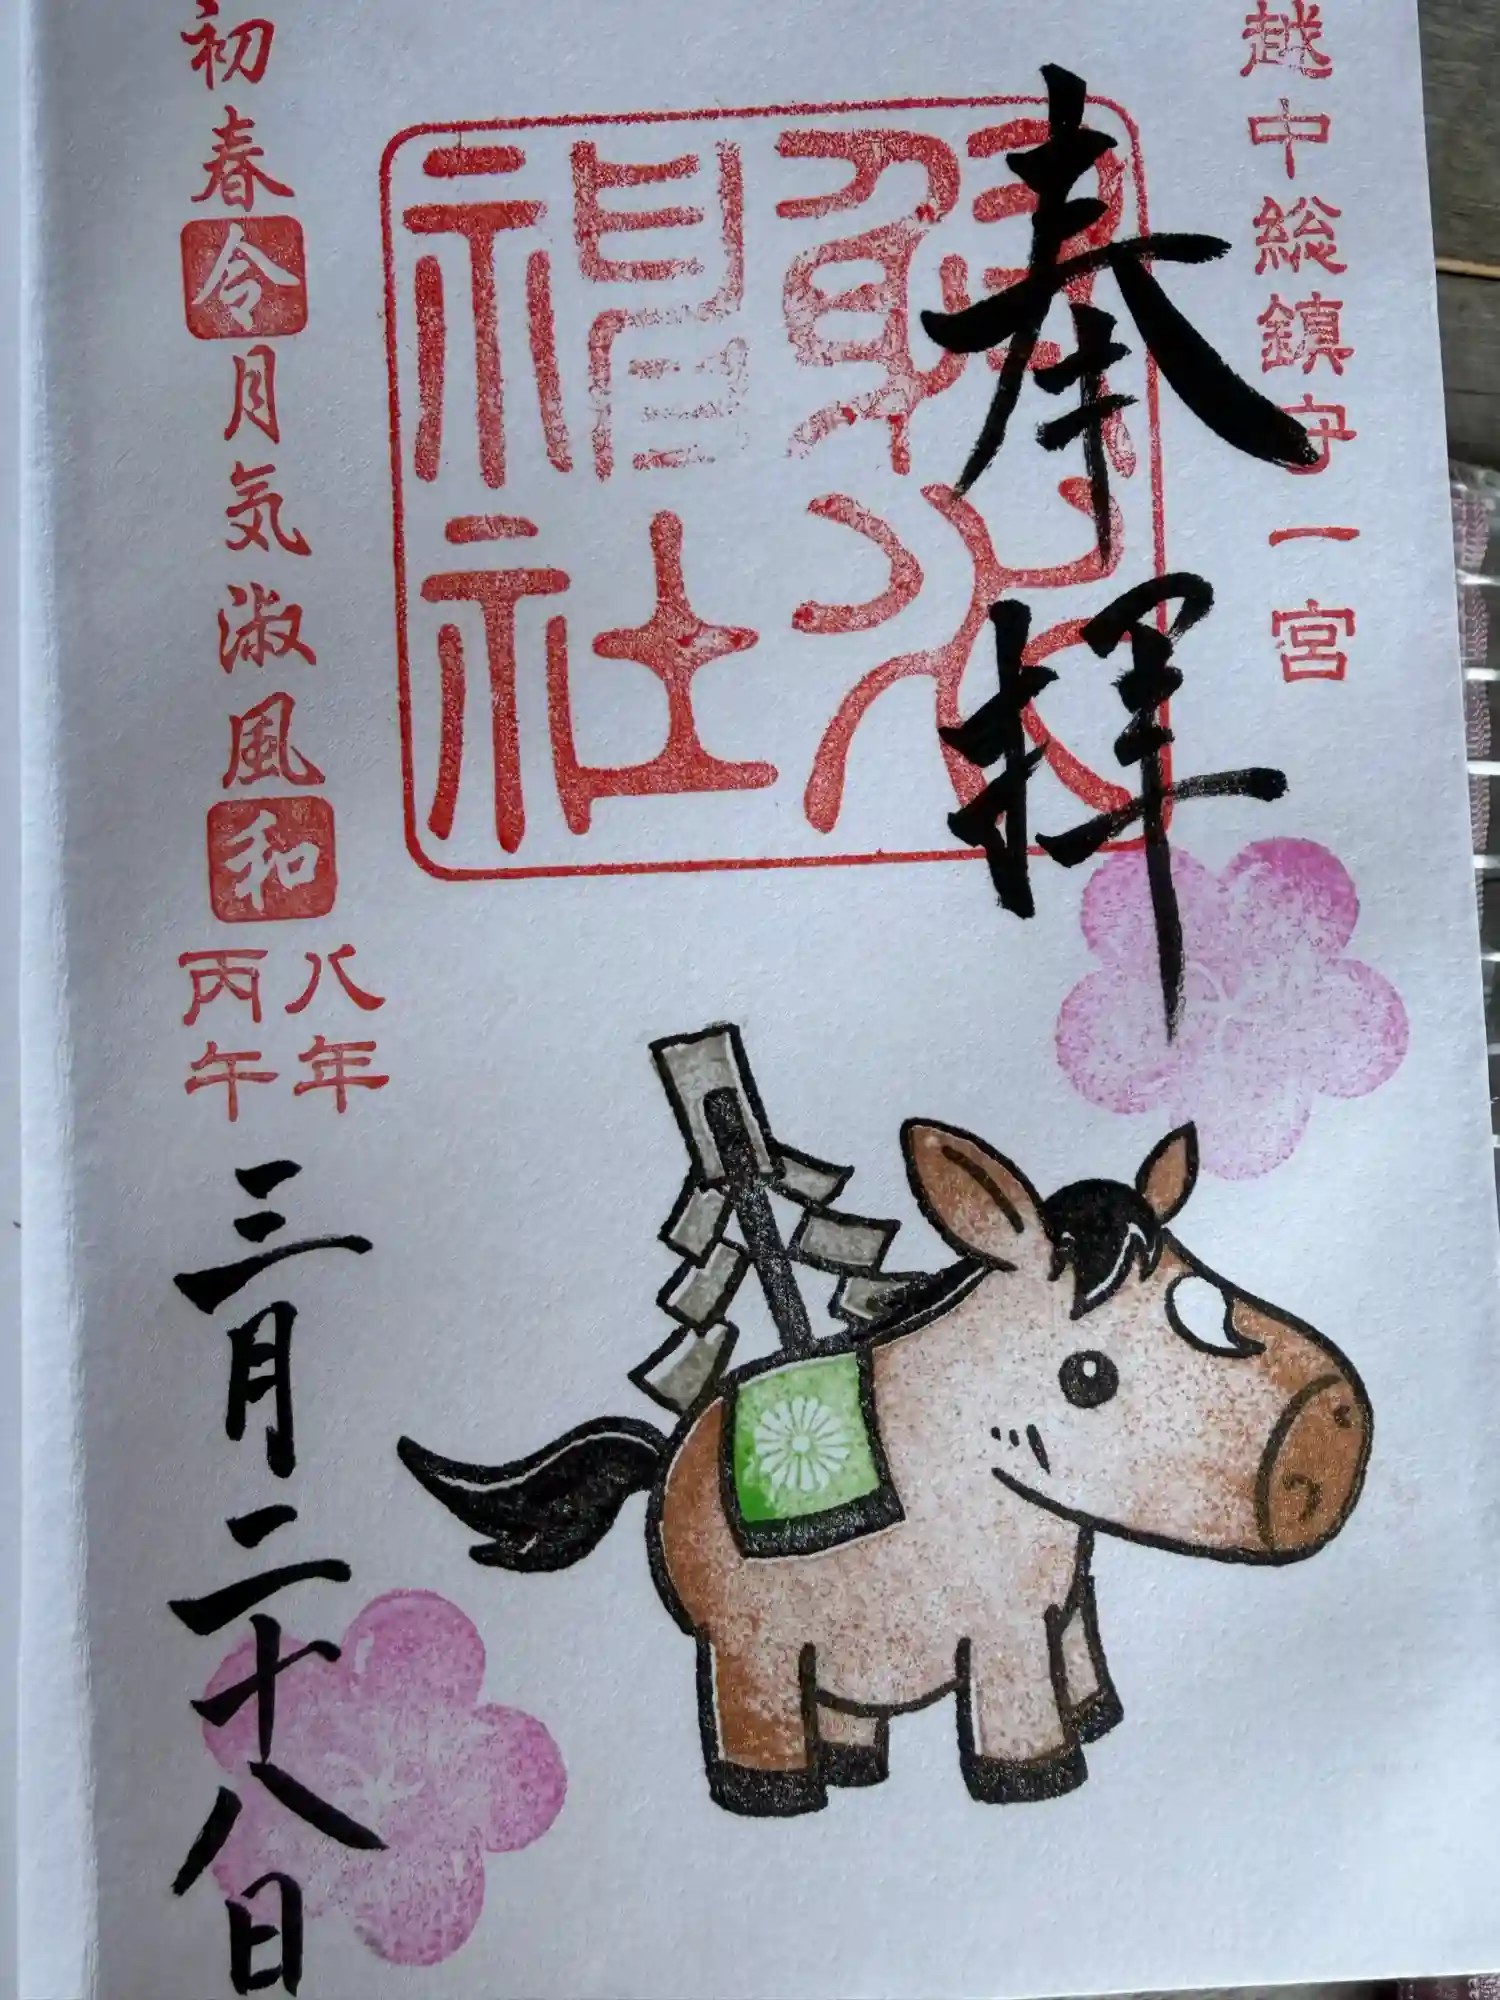 越中総鎮守一宮
奉拝
射水
神社
初春令月気淑風和
八年
丙午
三月二十八日